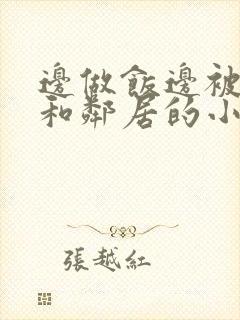 邊做飯邊被
和鄰居的小
張越紅